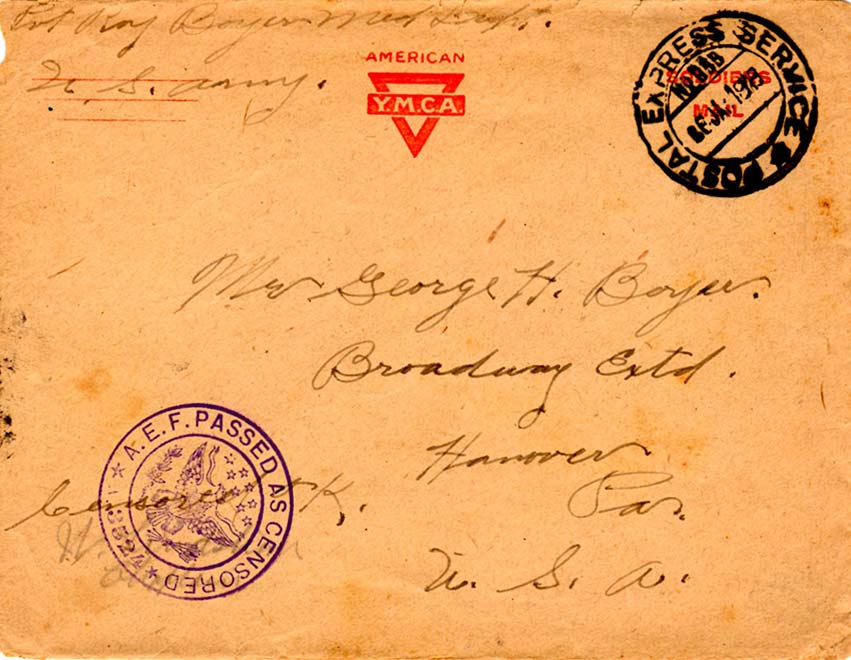 Pvt Roy Boyer Med Dept.
U. S. Army.
AMERICAN
Y.M.C.A.
SOLDIERS
MAIL
POSTAL EXPRESS SERVICE
JA 1918
Mr George H. Boyer.
Broadway Extd.
Hanover
Pa.
U. S. A.
A.E.F. PASSED AS CENSORED
Censored O.K.